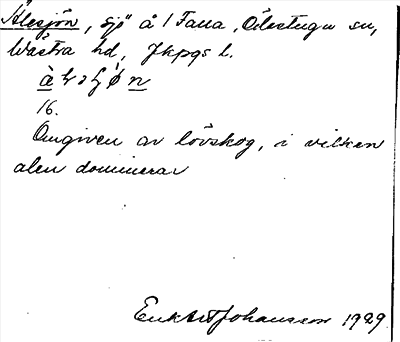 Alesjön, sjö å 1 Falla, Ödestugu sn,
Västra hd, Jkpgs l.
16.
Omgiven av lövskog, i vilken
alen dominerar
Johansson 1929